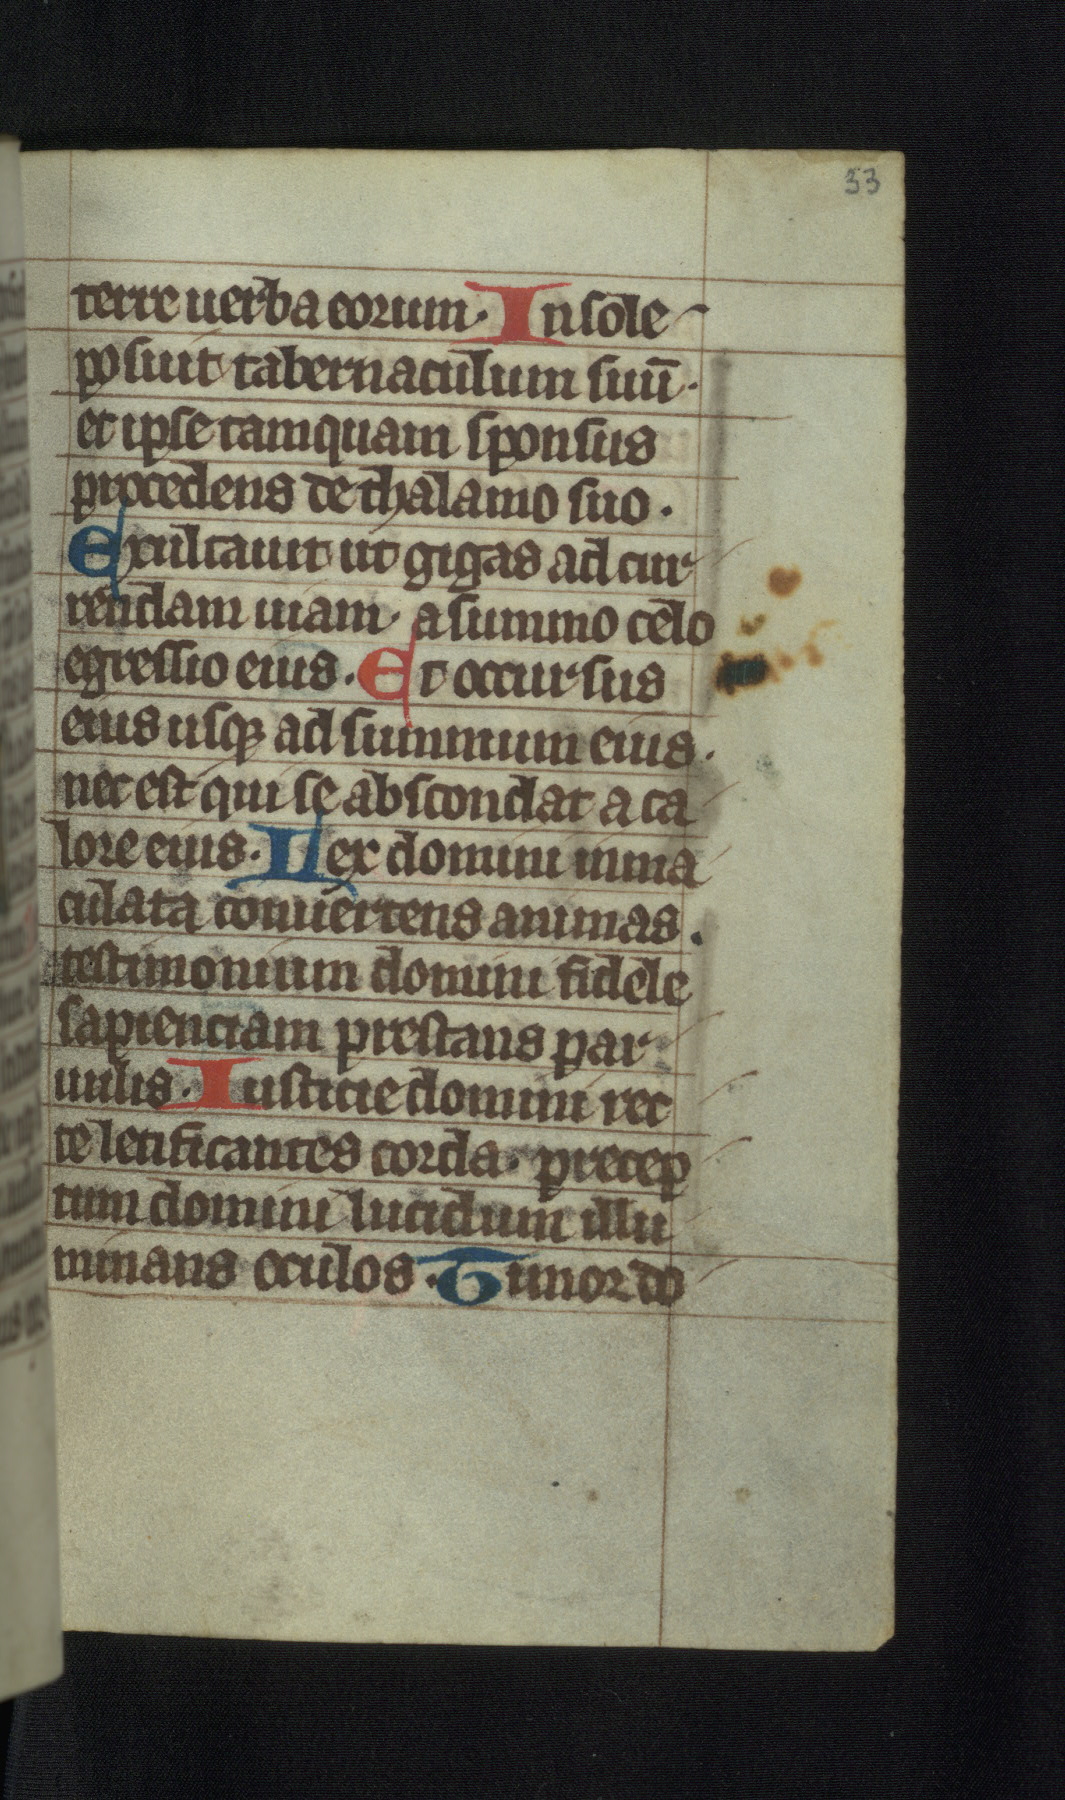 33
terre uerba eorum. In sole
posuit tabernaculum suū.
et ipse tamquam sponsus
procedens de thalamo suo.
Exultauit ut gigas ad cur
rendam uiam. a summo celo
egressio eius. Et occursus
eius usq; ad summum eius.
nec est qui se abscondat a ca
lore eius. Lex domini inma
culata conuertens animas.
testimonium domini fidele
sapienciam prestans par
uulis. Iusticie domini rec
te letificantes corda. precep
tum domini lucidum illu
minans oculos. Timor do